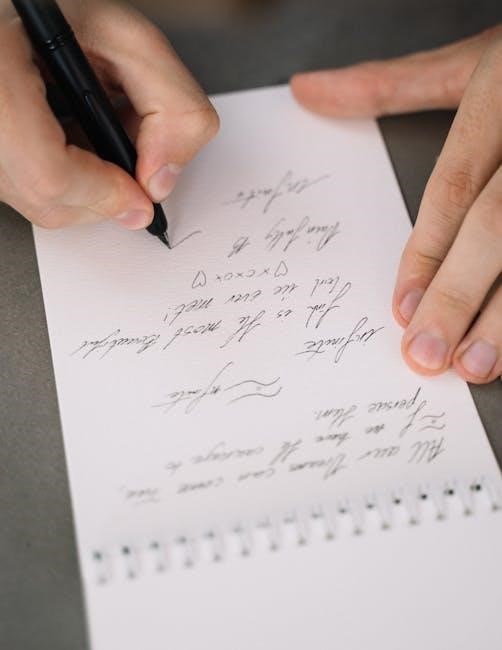 All our Dream can come true,
If we have the courage to
persue them.
Infinite
Infinite
Ink is the most Beautiful
tent we ever met!
♡xoxo♡
Painfully B
Infinite